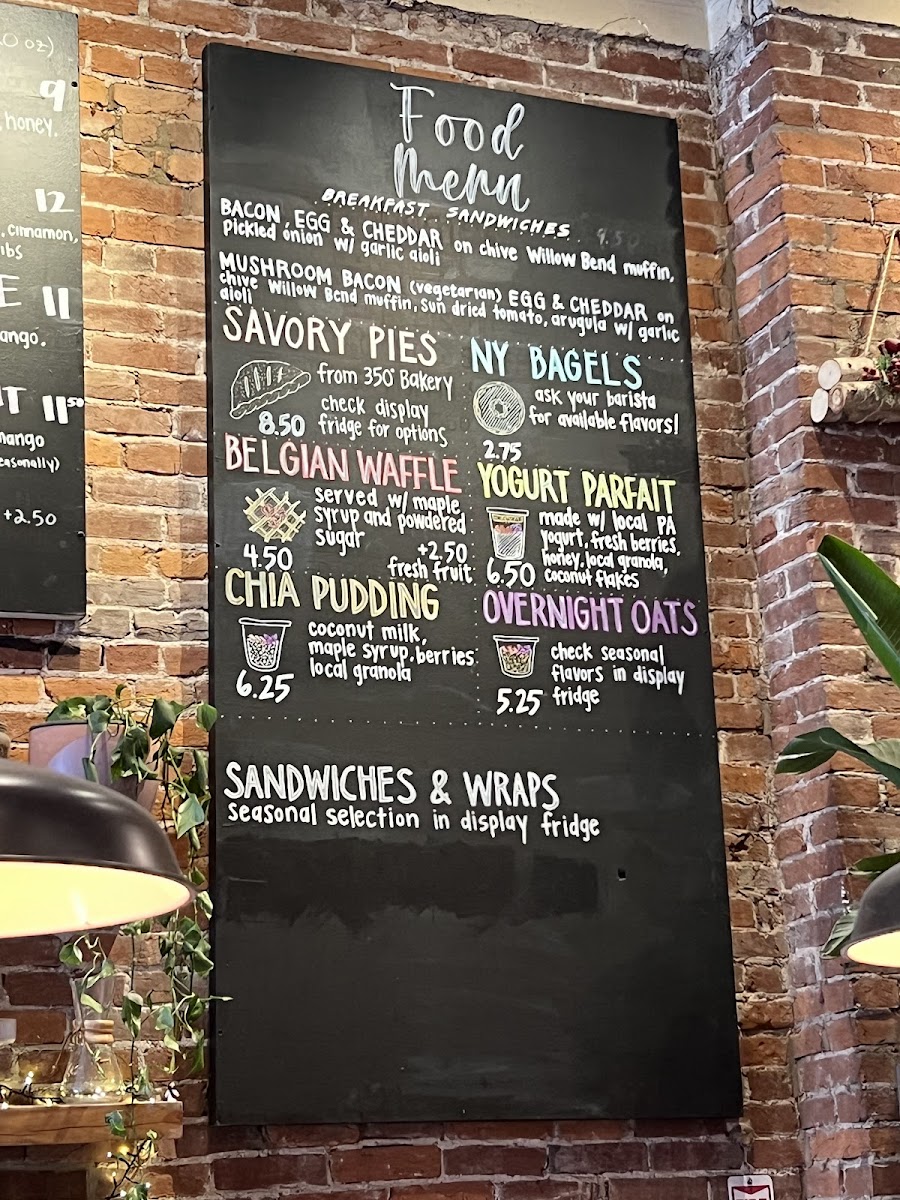 0 oz)
9
honey.
12
, cinnamon,
ibs
E 11
ango.
T 11.50
mango
easonally)
+2.50
Food
Menu
BREAKFAST SANDWICHES 9.50
BACON, EGG & CHEDDAR on chive Willow Bend muffin,
pickled onion w/ garlic aioli
MUSHROOM BACON (vegetarian) EGG & CHEDDAR on
chive Willow Bend muffin, sun dried tomato, arugula w/ garlic
aioli
SAVORY PIES
from 350° Bakery
check display
fridge for options
8.50
NY BAGELS
ask your barista
for available flavors!
2.75
BELGIAN WAFFLE
served w/ maple
syrup and powdered
sugar
4.50
+2.50
fresh fruit
YOGURT PARFAIT
made w/ local PA
yogurt, fresh berries,
honey, local granola,
coconut flakes
6.50
CHIA PUDDING
coconut milk,
maple syrup, berries
local granola
6.25
OVERNIGHT OATS
check seasonal
flavors in display
fridge
5.25
SANDWICHES & WRAPS
seasonal selection in display fridge